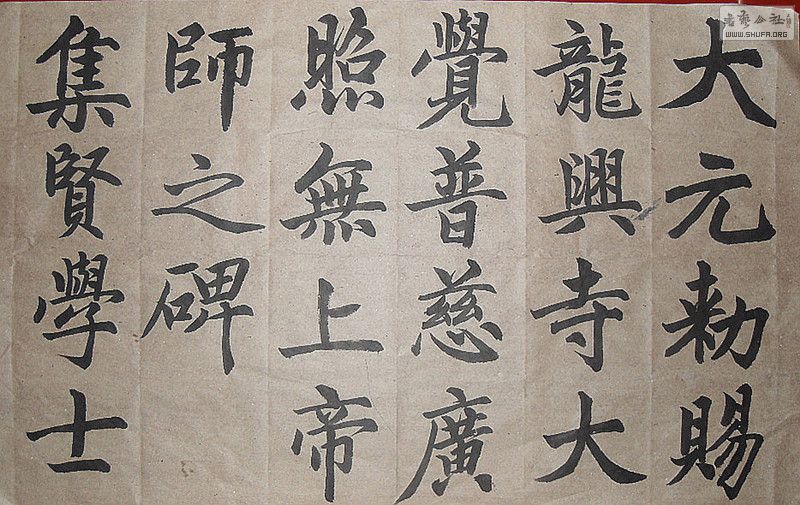 大元勅賜
龍興寺大
覺普慈廣
照無上帝
師之碑
集賢學士
WWW.SHUFA.ORG